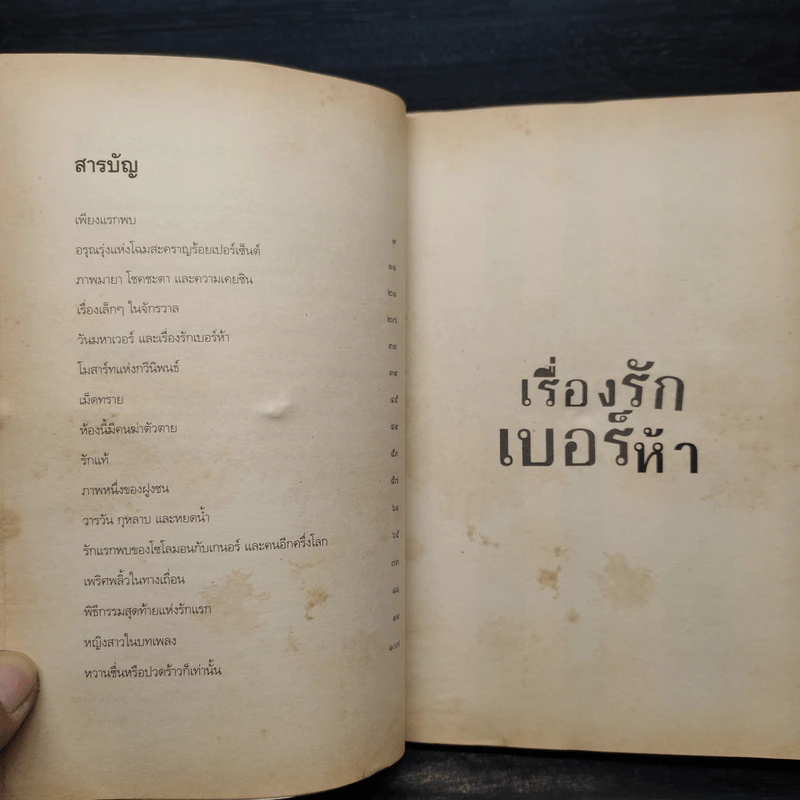 สารบัญ
เพียงแรกพบ
อรุณรุ่งแห่งโฉมสะคราญร้อยเปอร์เซ็นต์ ๗
ภาพมายา โชคชะตา และความเคยชิน ๑๑
เรื่องเล็กๆ ในจักรวาล ๒๑
วันมหาเวอร์ และเรื่องรักเบอร์ห้า ๒๗
โมสาร์ทแห่งกวีนิพนธ์ ๓๑
เม็ดทราย ๓๕
ห้องนี้มีคนฆ่าตัวตาย ๔๕
รักแท้ ๔๙
ภาพหนึ่งของฝูงชน ๕๓
วารวัน กุหลาบ และหยดน้ำ ๕๗
รักแรกพบของโซโลมอนกับเกนอร์ และคนอีกครึ่งโลก ๖๑
เพริศพลิ้วในทางเถื่อน ๖๕
พิธีกรรมสุดท้ายแห่งรักแรก ๗๓
หญิงสาวในบทเพลง ๘๑
หวานชื่นหรือปวดร้าวก็เท่านั้น ๑๐๗
เรื่องรัก
เบอร์ห้า